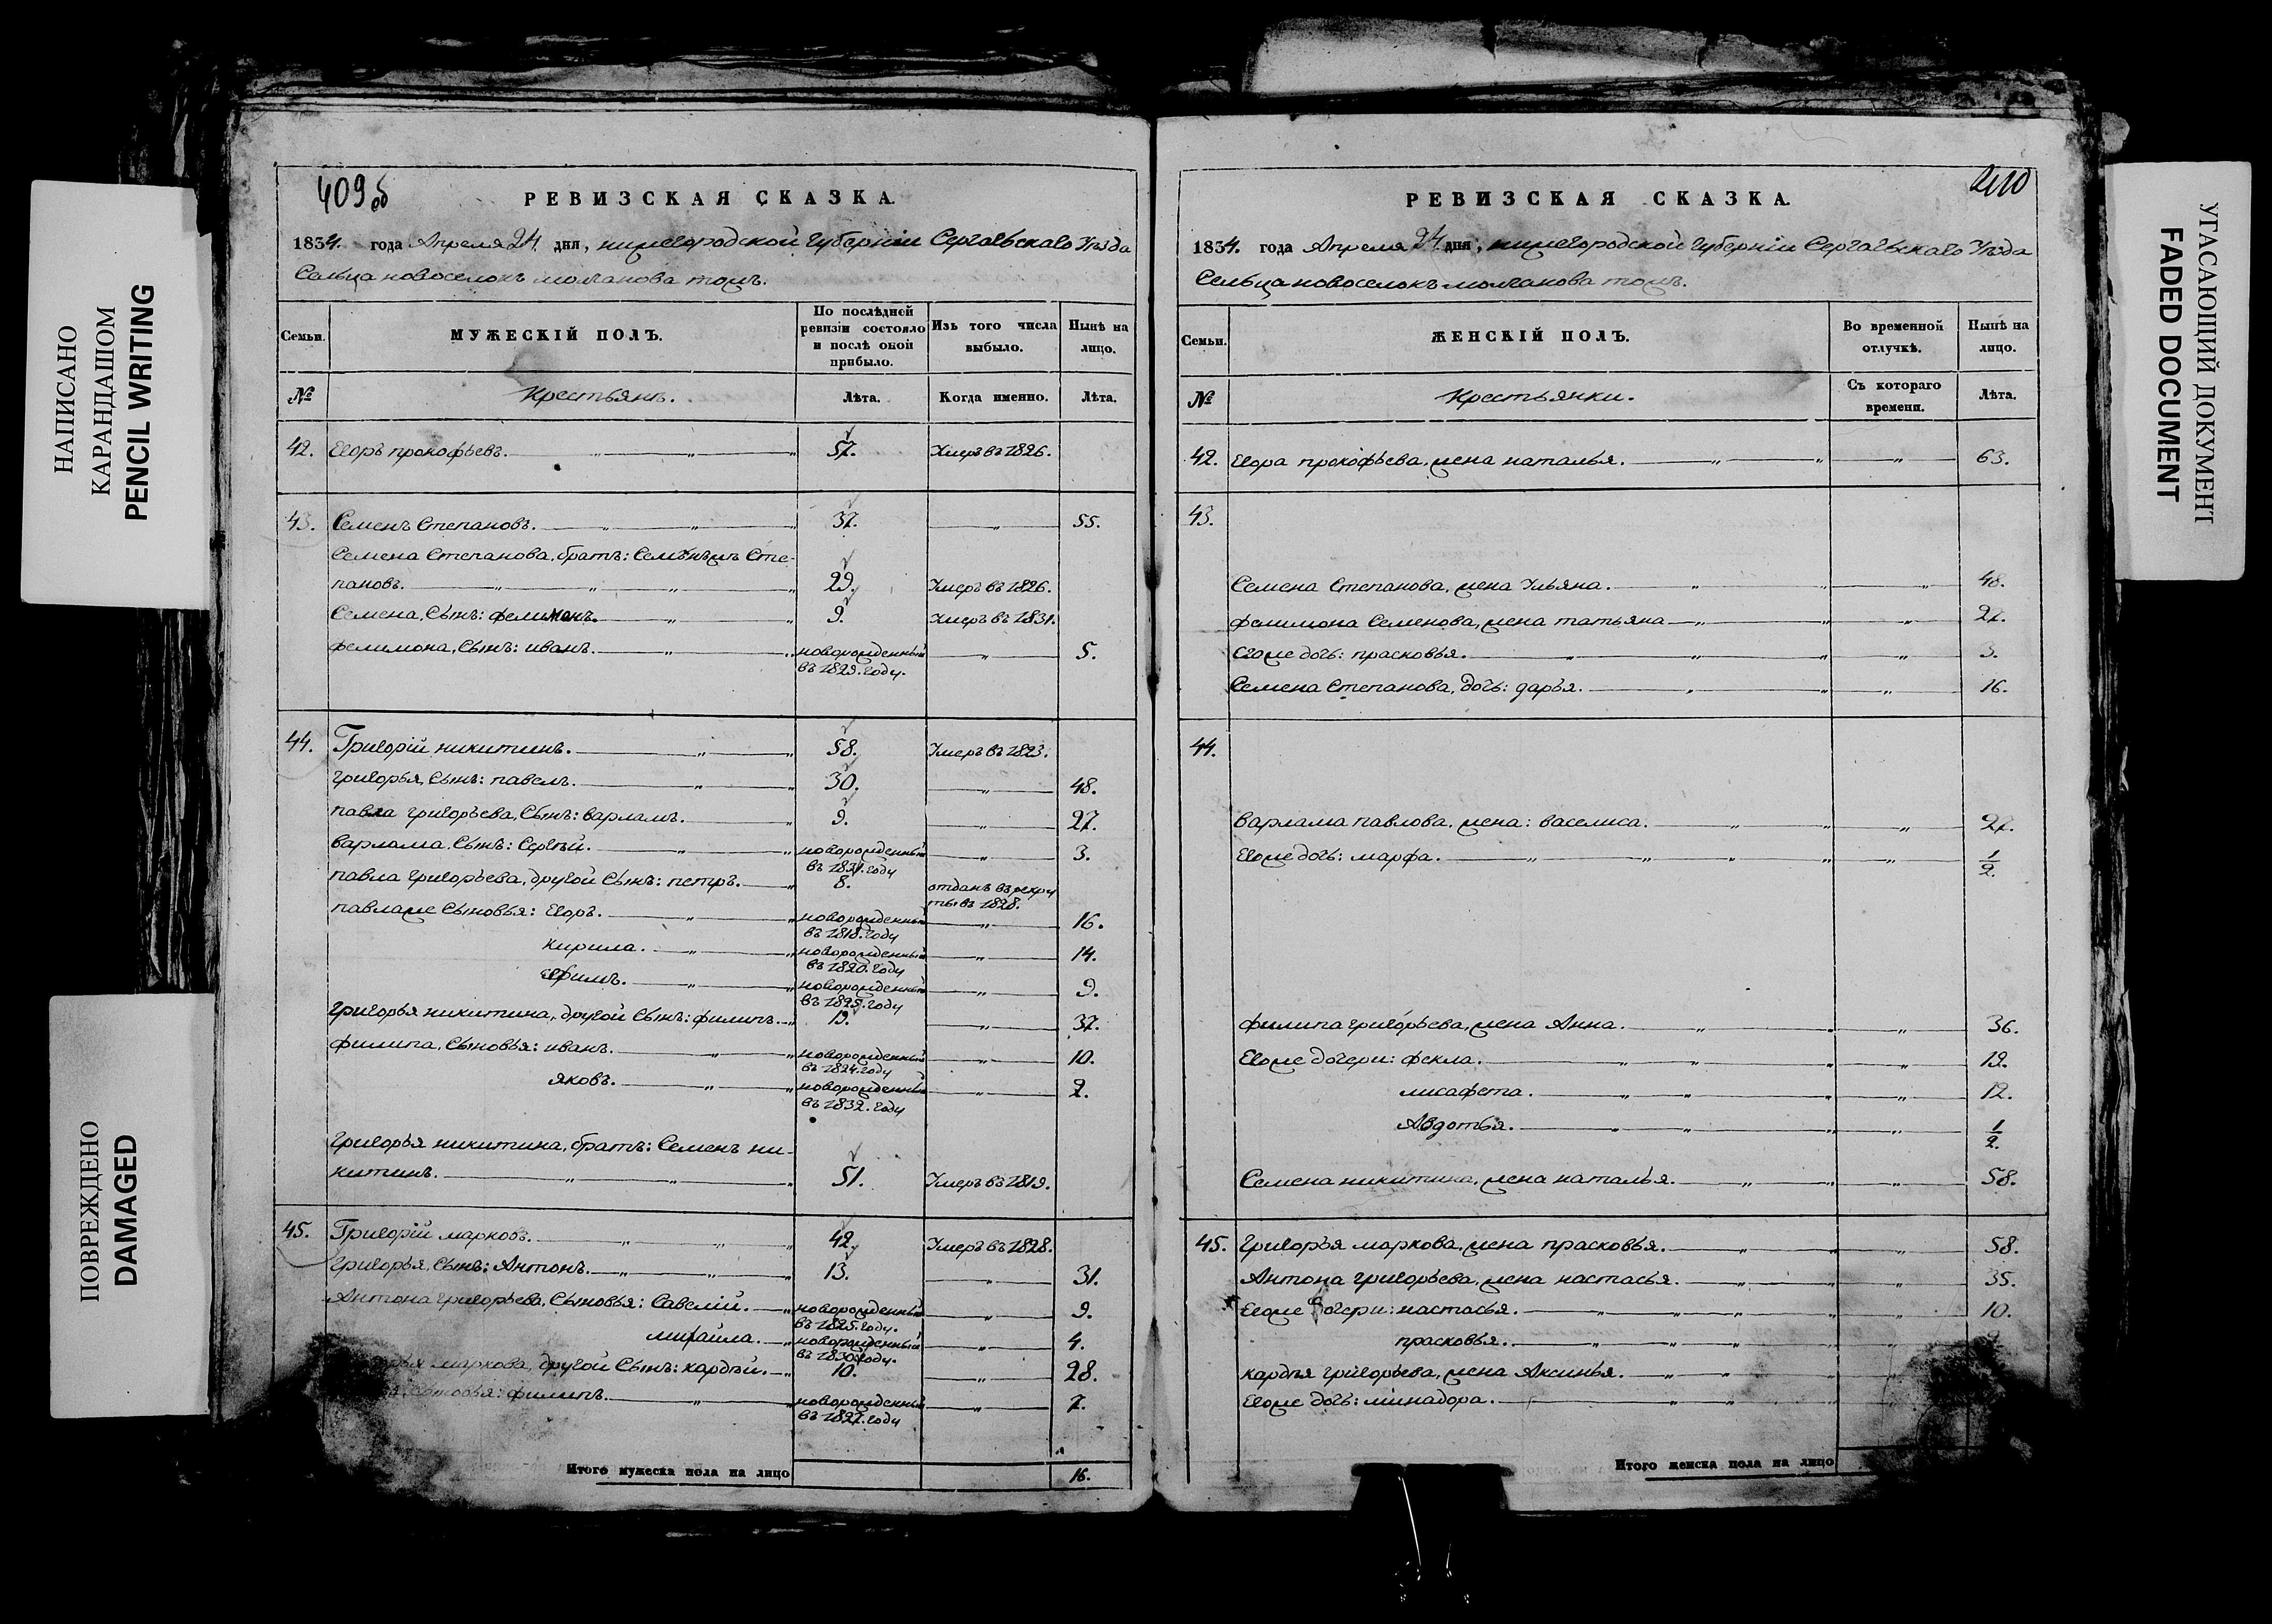 НАПИСАНО
КАРАНДАШОМ
PENCIL WRITING
ПОВРЕЖДЕНО
DAMAGED
409об
РЕВИЗСКАЯ СКАЗКА.
1834. года Апреля 24 дня, нижегородской губернии Сергачьскаго Уѣзда
Сельца новоселокъ молчанова тожъ.
Семьи.
МУЖЕСКІЙ ПОЛЪ.
По послѣдней ревизіи состояло и послѣ оной прибыло.
Изъ того числа выбыло.
Нынѣ на лицо.
№
Крестьянъ.
Лѣта.
Когда именно.
Лѣта.
42. Егоръ прокофьевъ. 57. Умеръ въ 1826.
43. Семенъ Степановъ. 37. 55.
Семена Степанова, братъ: Сте-
пановъ. 29. Умеръ въ 1826.
Семена, Сынъ: фелимонъ. 9. Умеръ въ 1831.
фелимона, Сынъ: иванъ. новорожденный въ 1829. году. 5.
44. Григорій никитинъ. 58. Умеръ въ 1823.
григорья, Сынъ: павелъ. 30. 48.
павла григорьева, Сынъ: варламъ. 9. 27.
варлама, Сынъ: Сергѣй. новорожденный въ 1831. году 3.
павла григорьева, другой Сынъ: петръ. 8. отданъ въ рекруты въ 1828.
павлаже Сыновья: Егоръ. новорожденный въ 1818. году 16.
кирила. новорожденный въ 1820. году 14.
Ефимъ. новорожденный въ 1825. году 9.
григорья никитина, другой Сынъ: филипъ. 19. 37.
филипа, Сыновья: иванъ. новорожденный въ 1824. году 10.
яковъ. новорожденный въ 1832. году 2.
григорья никитина, братъ: Семенъ ни-
китинъ. 51. Умеръ въ 1819.
45. Григорій марковъ. 42. Умеръ въ 1828.
григорья, Сынъ: Антонъ. 13. 31.
Антона григорьева, Сыновья: Савелій. новорожденный въ 1825. году. 9.
михайла. новорожденный въ 1830 году. 4.
маркова, другой Сынъ: кардѣй. 10. 28.
Сыновья: филипъ. новорожденный въ 1827. году 7.
Итого мужеска пола на лицо 16.
410
РЕВИЗСКАЯ СКАЗКА.
1834. года Апреля 24 дня, нижегородской губерніи Сергачьскаго Уѣзда
Сельца новоселокъ молчанова тожъ.
Семьи.
ЖЕНСКІЙ ПОЛЪ.
Во временной отлучкѣ.
Нынѣ на лицо.
№
Крестьянки.
Съ котораго времени.
Лѣта.
42. Егора прокофьева, жена наталья. 63.
43.
Семена Степанова, жена Ульяна. 48.
фелимона Семенова, жена татьяна 27.
Егоже дочь: прасковья. 3.
Семена Степанова, дочь: дарья. 16.
44.
варлама павлова, жена: васелиса. 27.
Егоже дочь: марфа. 1/2.
филипа григорьева, жена Анна. 36.
Егоже дочери: фекла. 19.
лисафета. 12.
Авдотья. 1/2.
Семена никитина, жена наталья. 58.
45. григорья маркова, жена прасковья. 58.
Антона григорьева, жена настасья. 35.
Егоже дочери: настасья. 10.
прасковья.
кардѣя григорьева, жена Аксинья.
Егоже дочь: минадора.
Итого женска пола на лицо
УГАСАЮЩИЙ ДОКУМЕНТ
FADED DOCUMENT